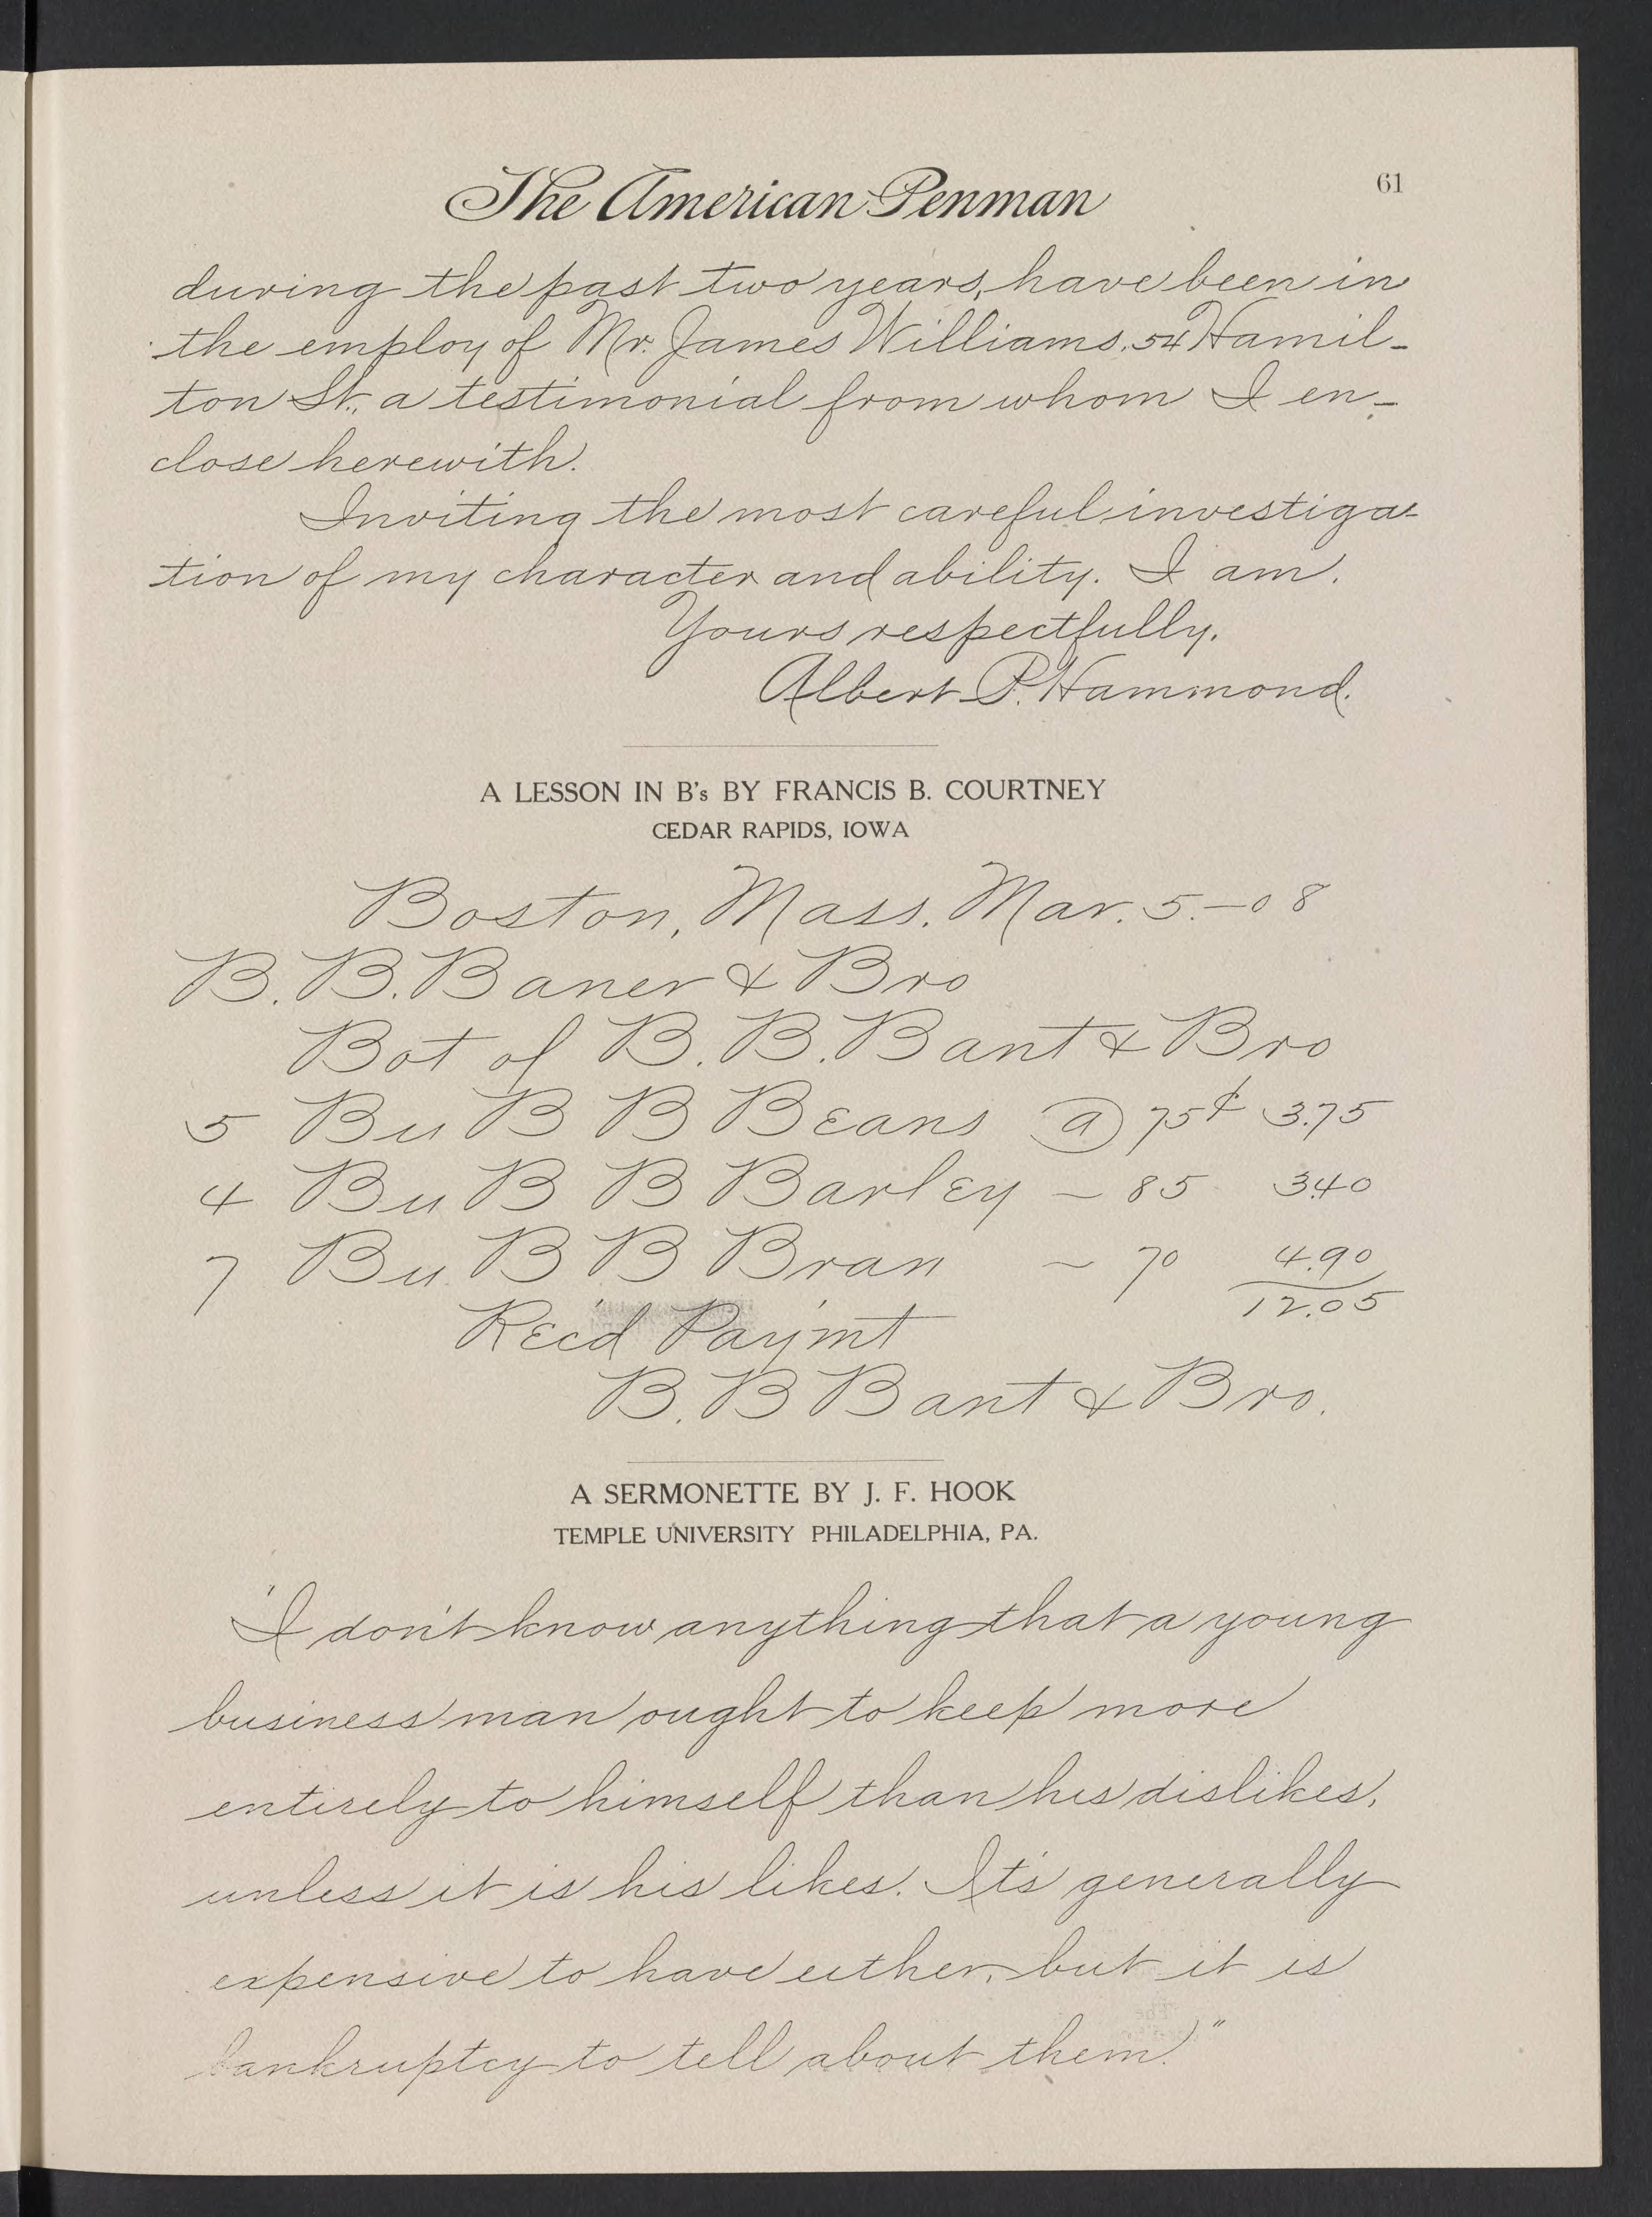 The American Penman
61
during the past two years, have been in
the employ of Mr. James Williams, 54 Hamil-
ton St., a testimonial from whom I en-
close herewith.
Inviting the most careful investiga-
tion of my character and ability. I am.
Yours respectfully.
Albert P. Hammond.
A LESSON IN B's BY FRANCIS B. COURTNEY
CEDAR RAPIDS, IOWA
Boston, Mass. Mar. 5.-08
B. B. Baner & Bro
Bot of B. B. Bant & Bro
5 Bu B B Beans @ 75¢ 3.75
4 Bu B B Barley - 85 3.40
7 Bu. B B Bran - 70 4.90
12.05
Rec'd Paym't
B. B Bant & Bro.
A SERMONETTE BY J. F. HOOK
TEMPLE UNIVERSITY PHILADELPHIA, PA.
"I don't know anything that a young
business man ought to keep more
entirely to himself than his dislikes,
unless it is his likes. It's generally
expensive to have either, but it is
bankruptcy to tell about them."